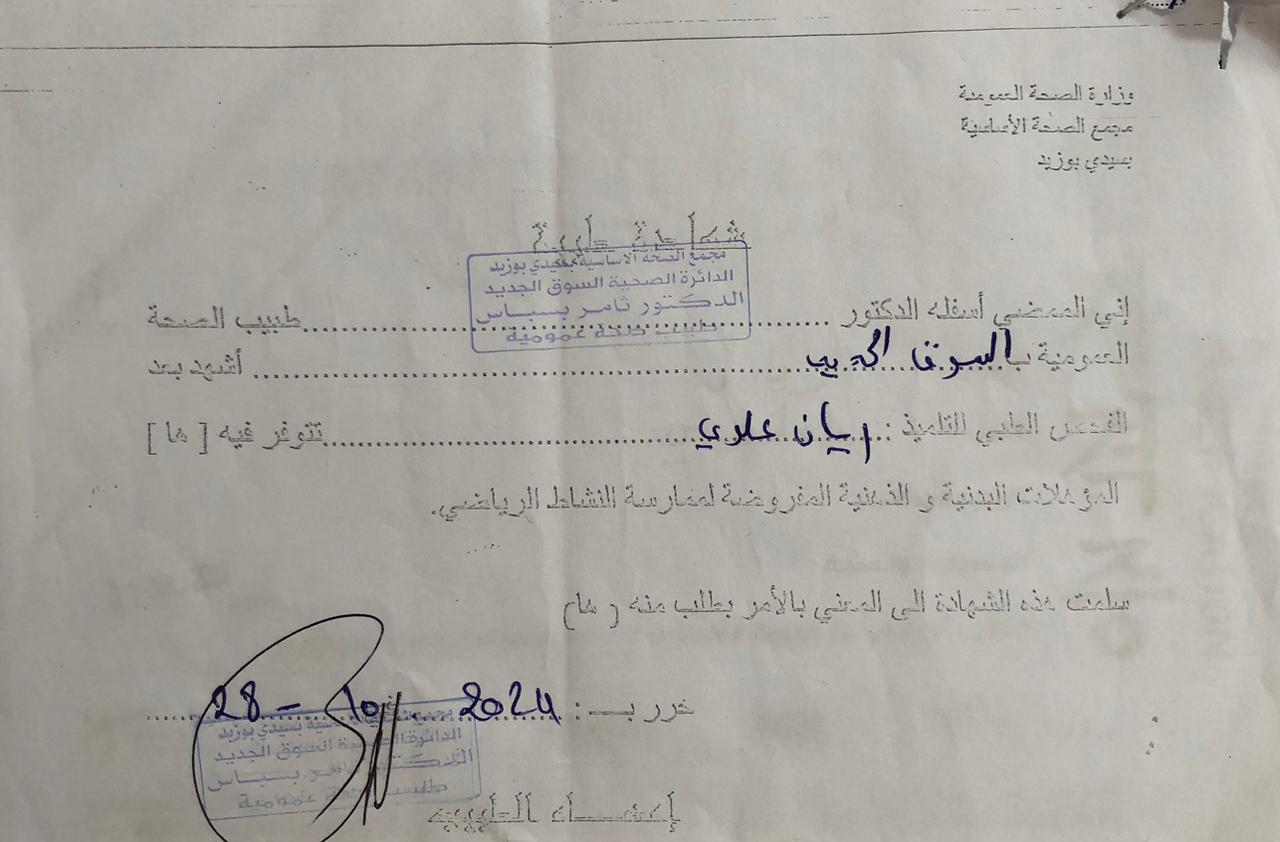 وزارة الصحة العمومية
مجمع الصحة الأساسية
بسيدي بوزيد
شهادة طبية
مجمع الصحة الأساسية بسيدي بوزيد
الدائرة الصحية السوق الجديد
الدكتور ثامر بسباس
طبيب صحة عمومية
إني الممضي أسفله الدكتور ........................ طبيب الصحة
العمومية بالسوق الجديد ........................ أشهد بعد
الفحص الطبي للتلميذ : ريان علوي ........................ تتوفر فيه [ ها ]
المؤهلات البدنية و الذهنية المفروضة لممارسة النشاط الرياضي.
سلمت هذه الشهادة الى المعني بالأمر بطلب منه ( ها)
حرر بـ : 28 - 10 2024
الدائرة الصحية السوق الجديد
الدكتور ثامر بسباس
طبيب صحة عمومية
إمضاء الطبيب